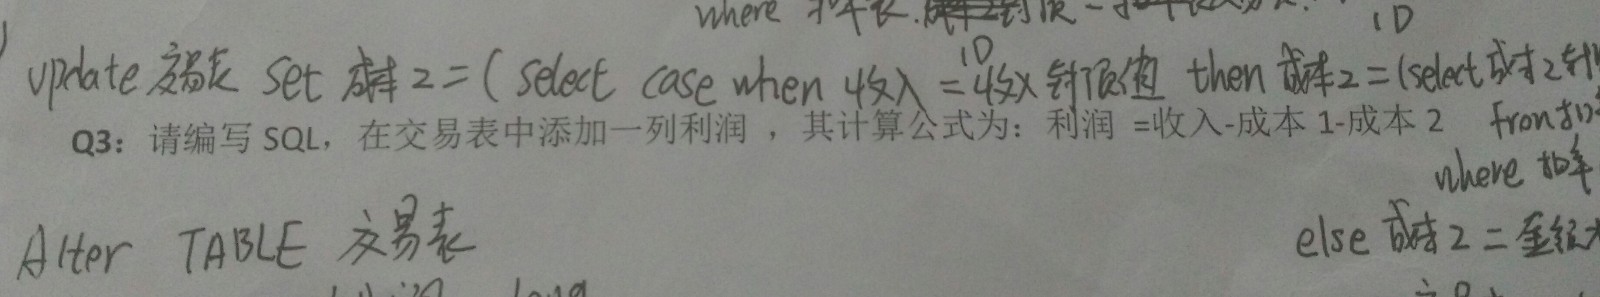 where 扣率表.
ID
ID
update 交易表 set 成本2=(select case when 收入=收入封顶值 then 成本2=(select 成本2封
Q3：请编写 SQL，在交易表中添加一列利润 ，其计算公式为：利润 =收入-成本 1-成本 2
from 扣
where 扣率
Alter TABLE 交易表
else 成本2=金额